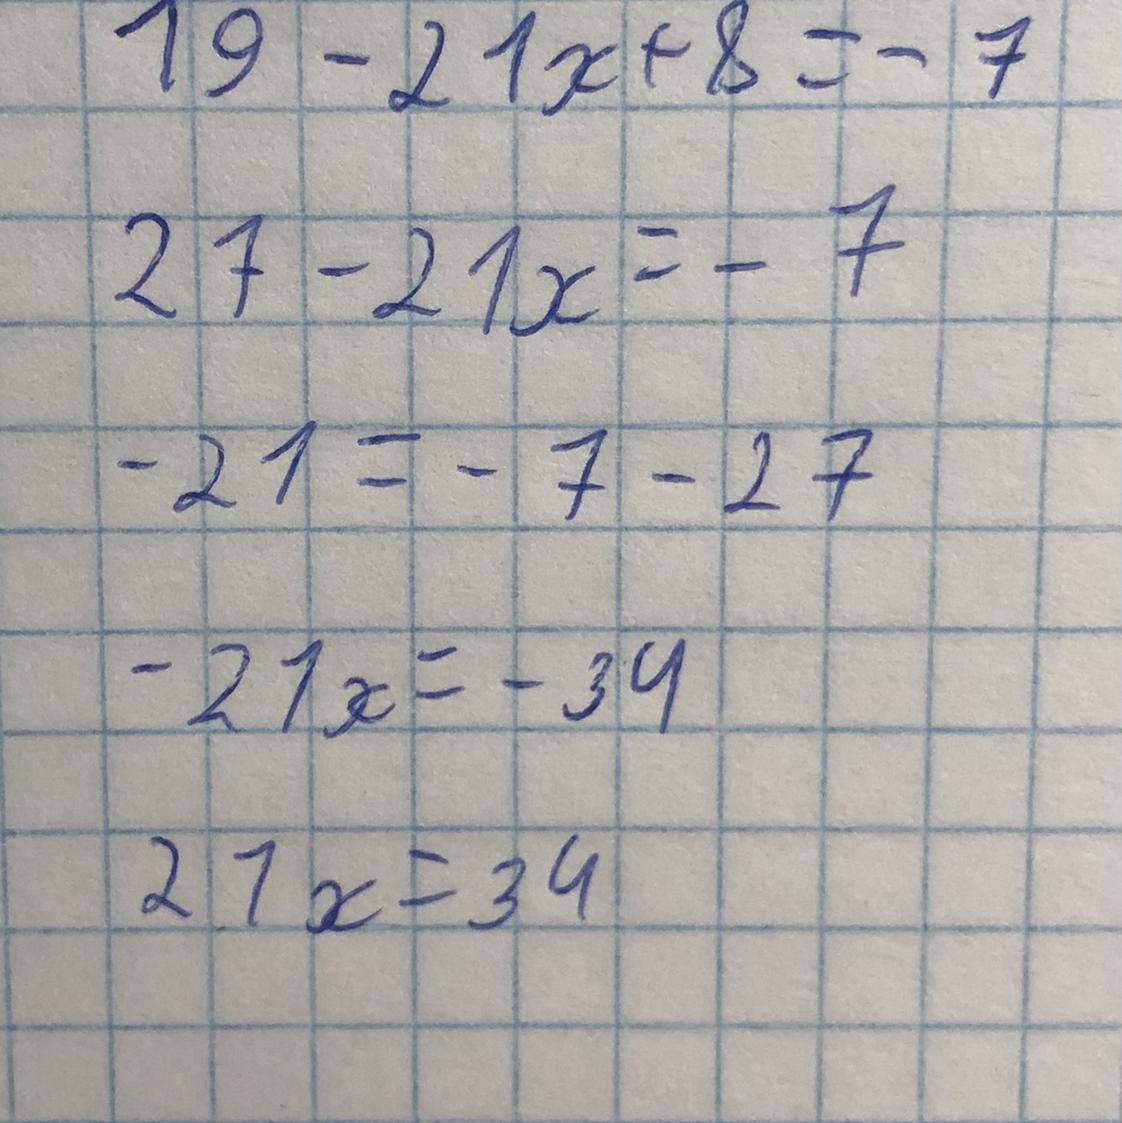 19 - 21x + 8 = - 7
27 - 21x = - 7
- 21 = - 7 - 27
- 21x = - 34
21x = 34